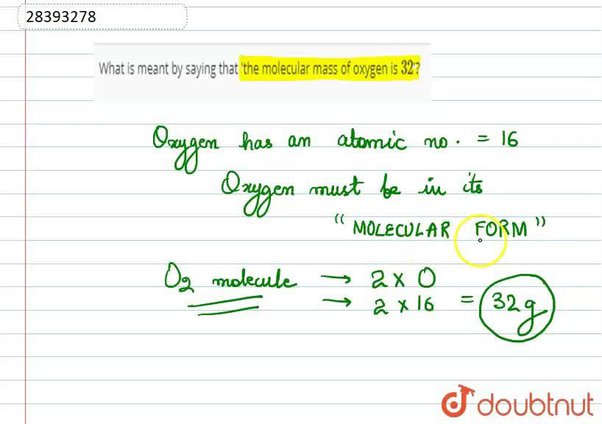 28393278
What is meant by saying that 'the molecular mass of oxygen is 32'?
Oxygen has an atomic no. = 16
Oxygen must be in its
"MOLECULAR FORM"
O2 molecule → 2 × O
→ 2 × 16 = 32g
doubtnut